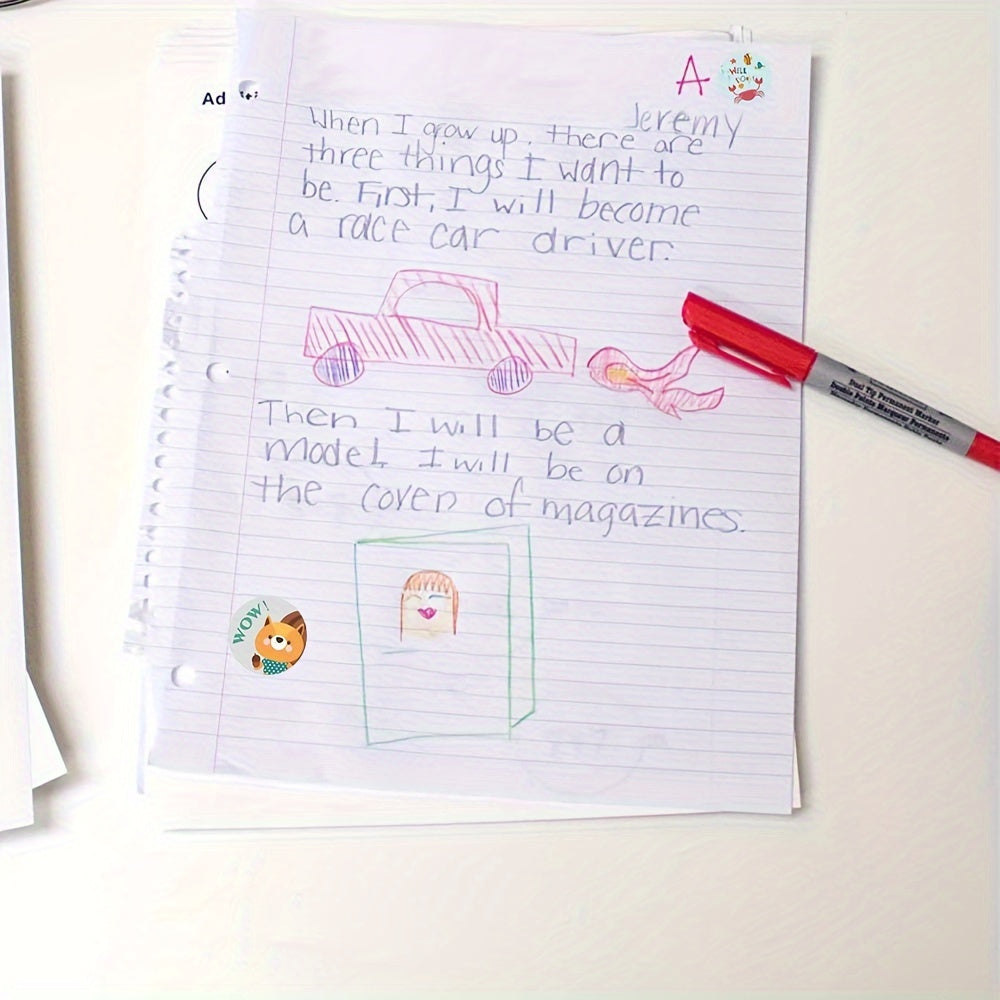 Ad
A
WELL DONE!
Jeremy
When I grow up, there are
three things I want to
be. First, I will become
a race car driver.
Then I will be a
model, I will be on
the cover of magazines.
WOW!
Dual Tip Permanent Marker